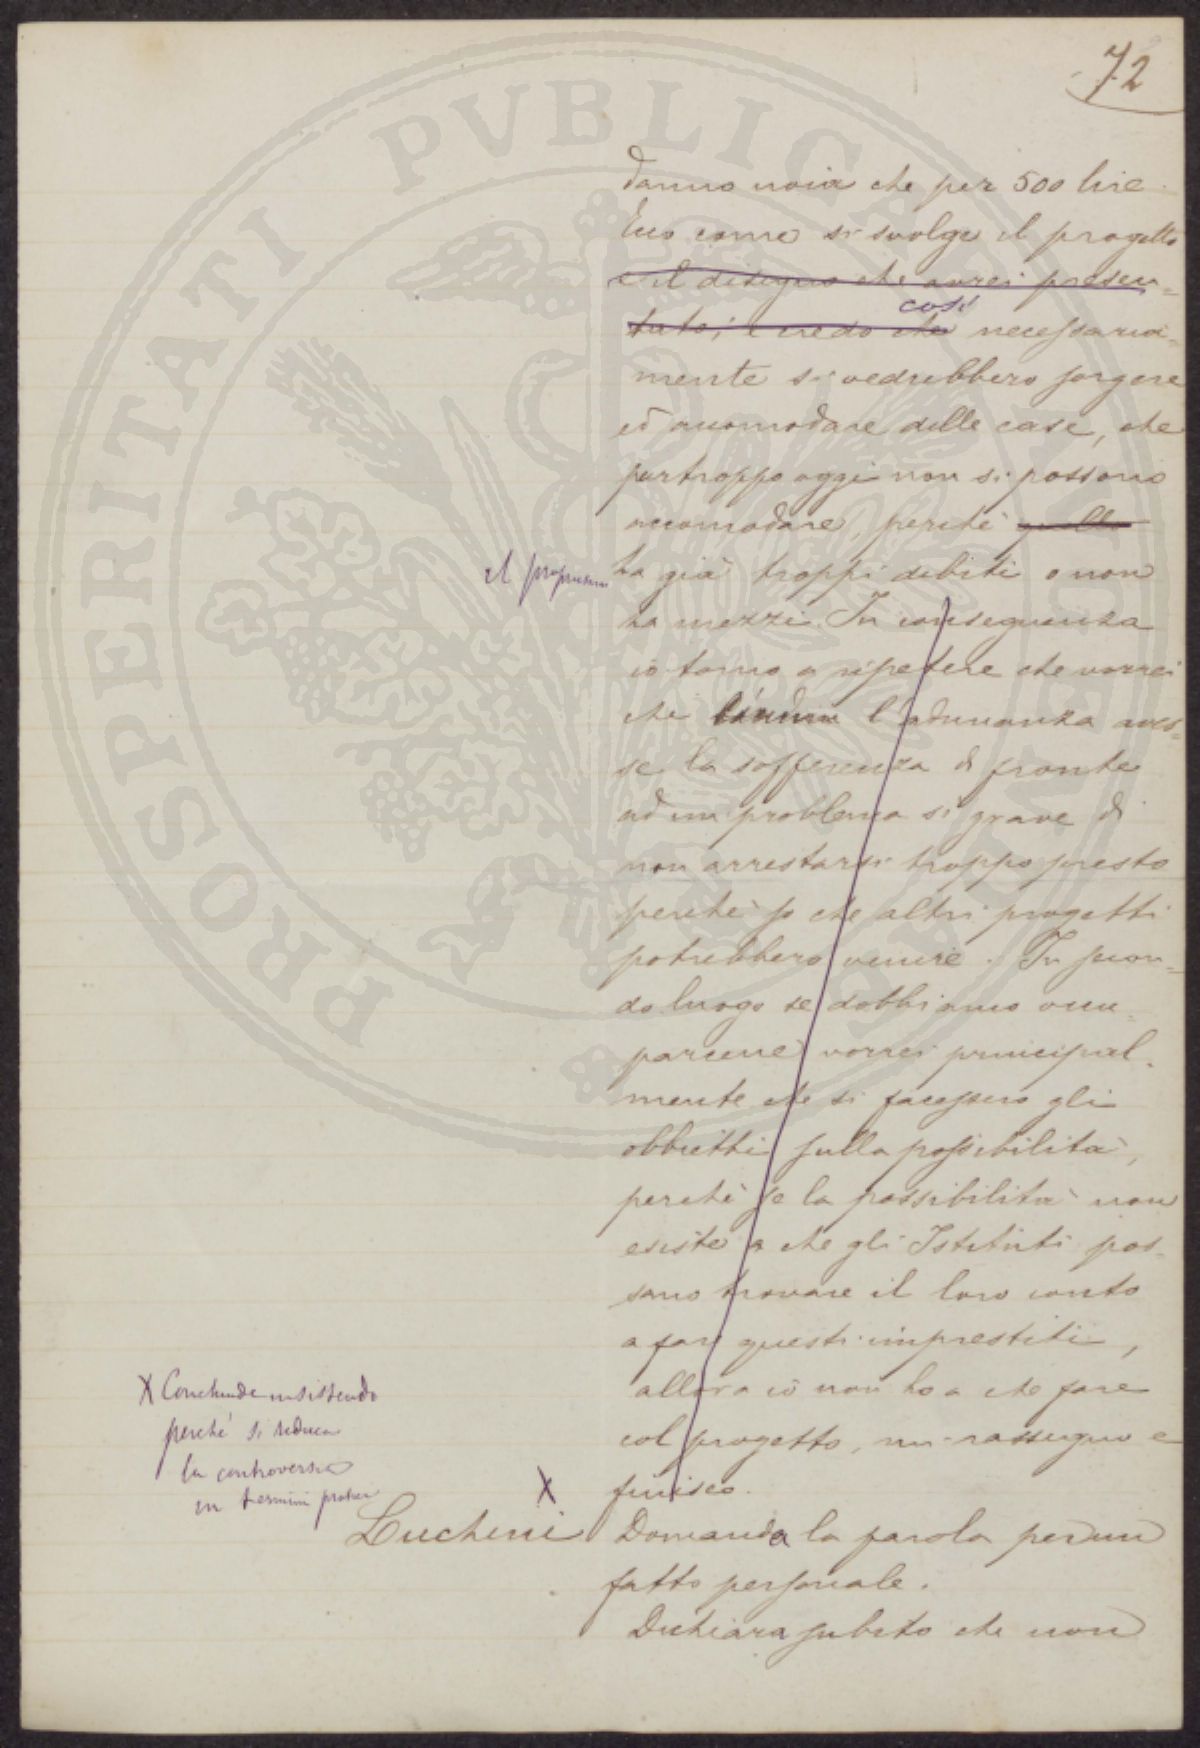 72
danno noia che per 500 lire.
Ecco come si svolge il progetto
e il disegno che avrei presen-
tato; e credo che così necessaria-
mente si vedrebbero sorgere
ed accomodare delle case, che
purtroppo oggi non si possono
accomodare, perchè quello
il proprietario
ha già troppi debiti o non
ha mezzi. In conseguenza
io torno a ripetere che vorrei
che l'adunanza aves-
se la sofferenza di fronte
ad un problema sì grave di
non arrestarsi troppo presto
perchè so che altri progetti
potrebbero venire. In secon-
do luogo se dobbiamo occu-
parcene vorrei principal-
mente che si facessero gli
obbietti sulla possibilità,
perchè se la possibilità non
esiste a che gli Istituti pos-
sano trovare il loro conto
a fare questi imprestiti,
allora io non ho a che fare
col progetto, mi rassegno e
finisco.
X Conchiude insistendo
perchè si riduca
la controversia
in termini pratici
X
Luchini Domanda la parola per un
fatto personale.
Dichiara subito che non
PROSPERITATI PVBLICAE AVGENDAE